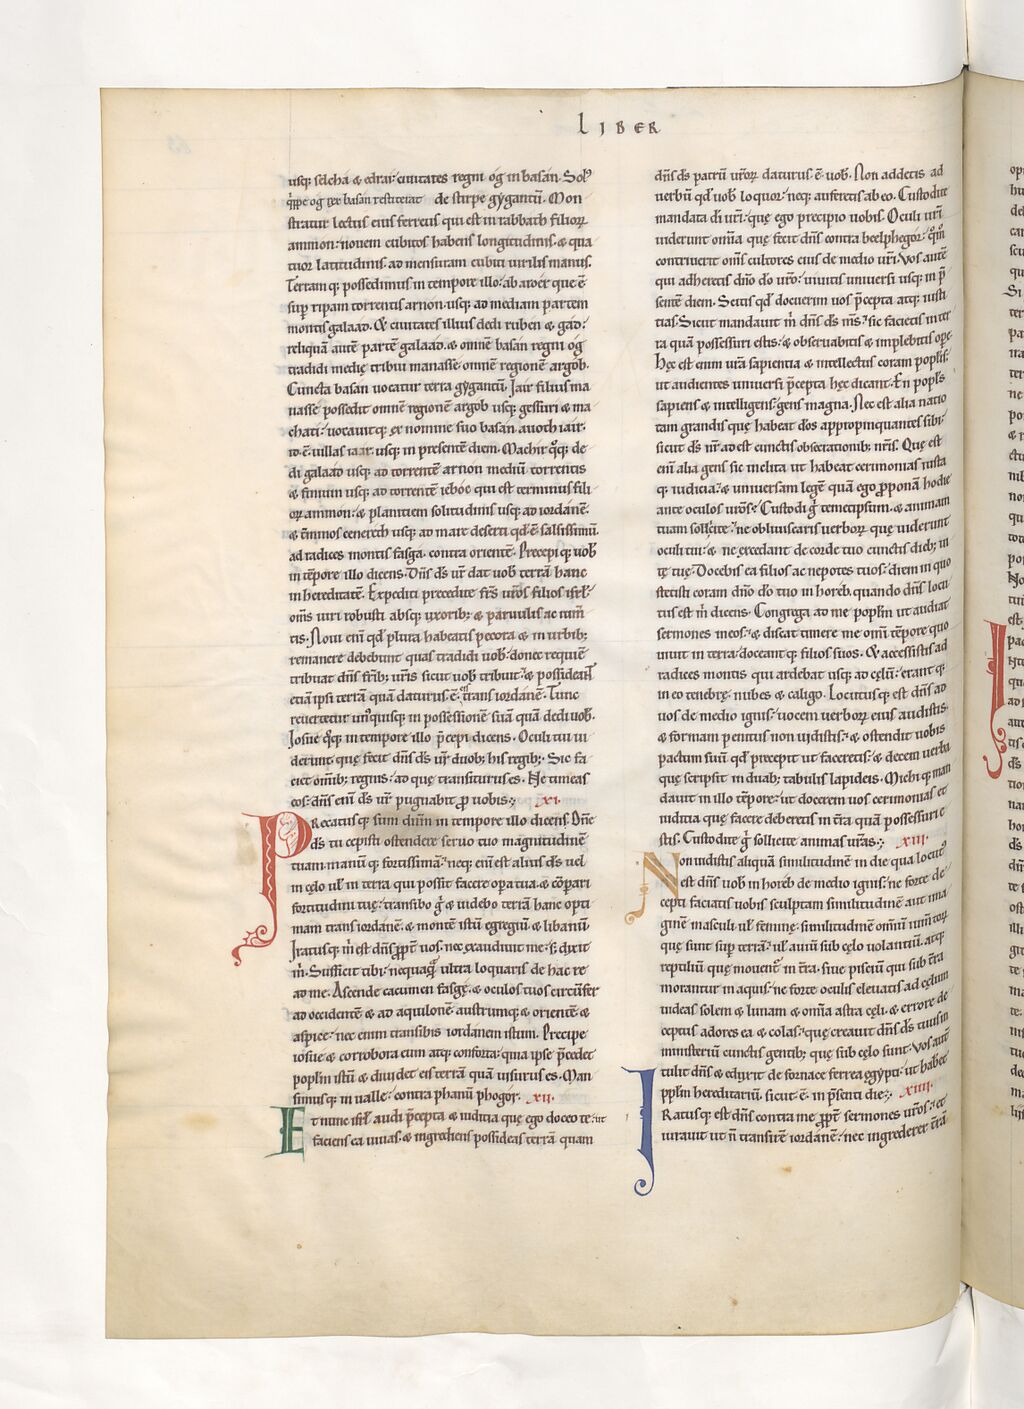 LIBER
usq; selcha & edrai: ciuitates regni og in basan. Solꝰ
q̊ppe og rex basan restiterat de stirpe gygantū. Mon
stratur lectus eius ferreus qui est in rabbath filioꝝ
ammon: nouem cubitos habens longitudinis. & qua
tuor latitudinis. ad mensuram cubiti uirilis manus.
Terram q; possedimus in tempore illo: ab aroer que ē
sup ripam torrentis arnon. usq; ad mediam partem
montis galaad. & ciuitates illius dedi ruben & gad:
reliquā autē partē galaad. & omnē basan regni og
tradidi medię tribui manasse. omnē regionē argob.
Cuncta basan uocatur terra gygantū. Iair filius ma
nasse possedit omnē regionē argob usq; gessuri & ma
chati: uocauitq; ex nomine suo basan. auoth iair.
id ē. uillas iaar. usq; in presentē diem. Machir q̊q; de
di galaad usq; ad torrentē arnon mediū torrentis
& finium usq; ad torrentē ieboc qui est terminus fili
oꝝ ammon: & planitiem solitudinis usq; ad iordanē.
& t̄minos cenereth usq; ad mare deserti qd̄ ē salsissimū.
ad radices montis fasga. contra orientē. Precepi q; uob̄
in tēpore illo dicens. Dn̄s ds̄ ur̄ dat uob̄ terrā hanc
in hereditatē. Expediti precedite fr̄s ur̄os filios isrl̄.
om̄s uiri robusti absq; uxorib; & paruulis ac ium̄
tis. Noui enī qd̄ plura habeatis pecora & in urbib;
remanere debebunt quas tradidi uob̄. donec requiē
tribuat dn̄s frīb; ur̄is sicut uob̄ tribuit: & possideant
etiā ipsi terrā quā daturus ē. trans iordanē. Tunc
reuertetur unꝰquisq; in possessionē suā quā dedi uob̄.
Iosue q̊q; in tempore illo p̄cepi dicens. Oculi tui ui
derunt. quę fecit dn̄s ds̄ ur̄ duob; his regib;. Sic fa
ciet om̄ib; regnis: ad quę transiturus es. Ne timeas
eos. dn̄s enī ds̄ ur̄ pugnabit ꝓ uobis:; .xi.
PRecatusq; sum dn̄m in tempore illo dicens. Dn̄e
ds̄ tu cepisti ostendere seruo tuo magnitudinē
tuam. manū q; fortissimā: neq; enī est alius ds̄ uel
in cęlo ul̄ in terra qui possit facere opa tua. & cōpari
fortitudini tuę: transibo g̊ & uidebo terrā hanc opti
mam trans iordanē. & montē istū egregiū & libanū.
Iratusq; m̄ est dn̄s ꝓpt̄ uos. nec exaudiuit me: s; dixit
m̄. Sufficit tibi: nequaq̄ ultra loquaris de hac re
ad me. Ascende cacumen fasgę. & oculos tuos circūfer
ad occidentē & ad aquilonē. austrumq; & orientē &
aspice: nec enim transibis iordanem istum. Precipe
iosue & corrobora eum atq; conforta: quia ipse p̄cedet
popl̄m istū & diuidet eis terrā quā uisurus es. Man
simusq; in ualle: contra phanū phogor. .xii.
Et nunc isrl̄ audi p̄cepta & iudicia quę ego doceo te: ut
faciens ea uiuas. & ingrediens possideas terrā quam
dn̄s ds̄ patrū ur̄oꝝ daturus ē. uob̄. Non addetis ad
uerbū qd̄ uob̄ loquor: neq; auferetis ab eo. Custodite
mandata dī ur̄i: quę ego precipio uobis. Oculi ur̄i
uiderunt om̄ia quę fecit dn̄s contra beelphegor: q̊m̄
contriuerit om̄s cultores eius de medio ur̄i. Vos autē
qui adheretis dn̄o dō ur̄o: uiuitis uniuersi usq; in p̄
sentē diem. Scitis qd̄ docuerim uos p̄cepta atq; iusti
tias. Sicut mandauit m̄ dn̄s ds̄ m̄s: sic facietis in ter
ra quā possessuri estis: & obseruabitis & implebitis ope.
Hęc est enim ur̄a sapientia & intellectus coram popl̄is:
ut audientes uniuersi p̄cepta hęc dicant. En popl̄s
sapiens & intelligens: gens magna. Nec est alia natio
tam grandis quę habeat deos appropinquantes sibi:
sicut ds̄ nr̄ adest cunctis obsecrationib; nr̄is. Quę est
enī alia gens sic inclita ut habeat cerimonias iusta
q; iudicia: & uniuersam legē quā ego ꝓponā hodie
ante oculos ur̄os: Custodi g̊ temetipsum. & animam
tuam sollicite: ne obliuiscaris uerboꝝ quę uiderunt
oculi tui: & ne excedant de corde tuo cunctis dieb; ui
tę tuę. Docebis ea filios ac nepotes tuos: diem in quo
stetisti coram dn̄o dō tuo in horeb. quando dn̄s locu
tus est m̄ dicens. Congrega ad me popl̄m ut audiat
sermones meos: & discat timere me om̄i tēpore quo
uiuit in terra: doceant q; filios suos. & accessistis ad
radices montis qui ardebat usq; ad cęlū: erant q;
in eo tenebrę. nubes & caligo. Locutusq; est dn̄s ad
uos de medio ignis: uocem uerboꝝ eius audistis.
& formam penitus non uidistis: & ostendit uobis
pactum suū. qd̄ precepit ut faceretis: & decem uerba
quę scripsit in duab; tabulis lapideis. Michi q; man
dauit in illo tēpore: ut docerem uos cerimonias et
iuditia quę facere deberetis in t̄ra quā possessuri e
stis. Custodite g̊ sollicite animas ur̄as:; .xiii.
Non uidistis aliquā similitudinē in die qua locutꝰ
est dn̄s uob̄ in horeb de medio ignis: ne forte de
cepti faciatis uobis sculptam similitudinē aut ima
ginē masculi ul̄ feminę: similitudinē omniū ium̄toꝝ
quę sunt sup terrā: ul̄ auiū sub cęlo uolantiū. atq;
reptiliū quę mouent̄ in t̄ra. siue pisciū qui sub t̄ra
morantur in aquis: ne forte oculis eleuatis ad cęlum
uideas solem & lunam & om̄ia astra cęli. & errore de
ceptus adores ea & colas: quę creauit dn̄s ds̄ tuus in
ministeriū cunctis gentib; quę sub cęlo sunt. Vos aut̄
tulit dn̄s & eduxit de fornace ferrea egypti: ut habet
ppl̄m hereditariū. sicut ē. in p̄senti die:; .xiiii.
IRatus q; est dn̄s contra me ꝓpt̄ sermones ur̄os: et
iurauit ut n̄ transirē iordanē: nec ingrederer t̄rā